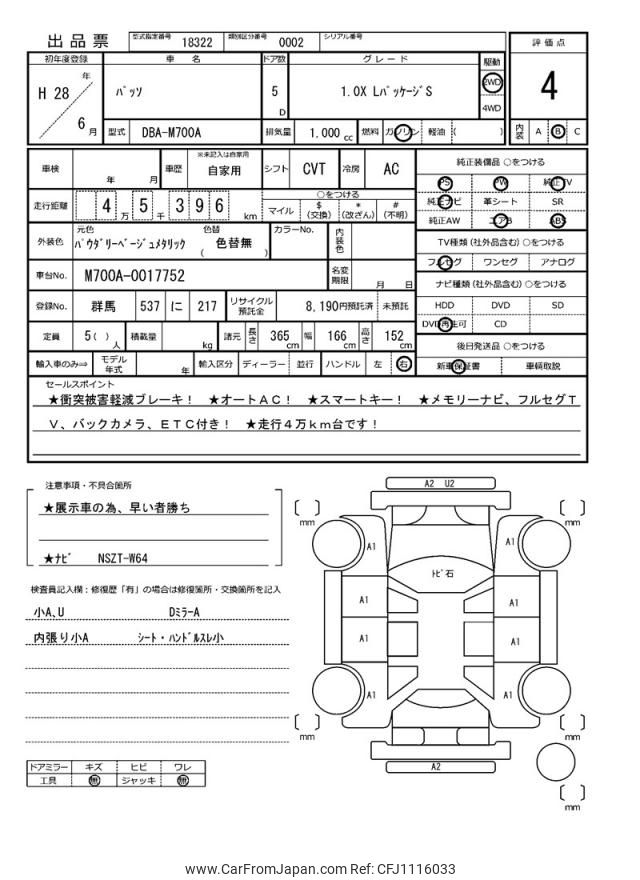 出品票 型式指定番号 18322 類別区分番号 0002 シリアル番号
初年度登録 車名 ドア数 グレード 駆動 評価点
H 28 年 6 月 パッソ 5 D 1.0X LパッケージS 2WD 4WD 4
型式 DBA-M700A 排気量 1.000 cc 燃料 ガソリン 軽油 ( ) 内装 A B C
車検 年 月 車歴 ※未記入は自家用 自家用 シフト CVT 冷房 AC 純正装備品 ○をつける
PS PW 純正TV
走行距離 4 万 5 千 3 9 6 km ○をつける マイル $(交換) *(改ざん) #(不明) 純正ナビ 革シート SR
純正AW エアB ABS
外装色 元色 パウダリーベージュメタリック 色替 ( 色替無 ) カラーNo. 内装色 TV種類 (社外品含む) ○をつける
フルセグ ワンセグ アナログ
車台No. M700A-0017752 名変期限 月 日 ナビ種類 (社外品含む) ○をつける
登録No. 群馬 537 に 217 リサイクル預託金 8,190円預託済 未預託 HDD DVD SD
DVD再生可 CD
定員 5( )人 積載量 kg 諸元 長さ 365 cm 幅 166 cm 高さ 152 cm 後日発送品 ○をつける
輸入車のみ⇒ モデル年式 年 輸入区分 ディーラー 並行 ハンドル 左 右 新車保証書 車輌取説
セールスポイント
★衝突被害軽減ブレーキ! ★オートAC! ★スマートキー! ★メモリーナビ、フルセグT
V、バックカメラ、ETC付き! ★走行4万km台です!
注意事項・不具合箇所
★展示車の為、早い者勝ち
★ナビ NSZT-W64
検査員記入欄:修復歴「有」の場合は修復箇所・交換箇所を記入
小A、U Dミラ-A
内張り小A シート・ハンドルスレ小
ドアミラー キズ ヒビ ワレ
工具 無 ジャッキ 無
A2 U2
[ ] mm [ ] mm
A1 A1
トビ石
A1 A1
A1 A1
A1 A1
[ ] mm [ ] mm
A2
[ ] mm
www.CarFromJapan.com Ref: CFJ1116033